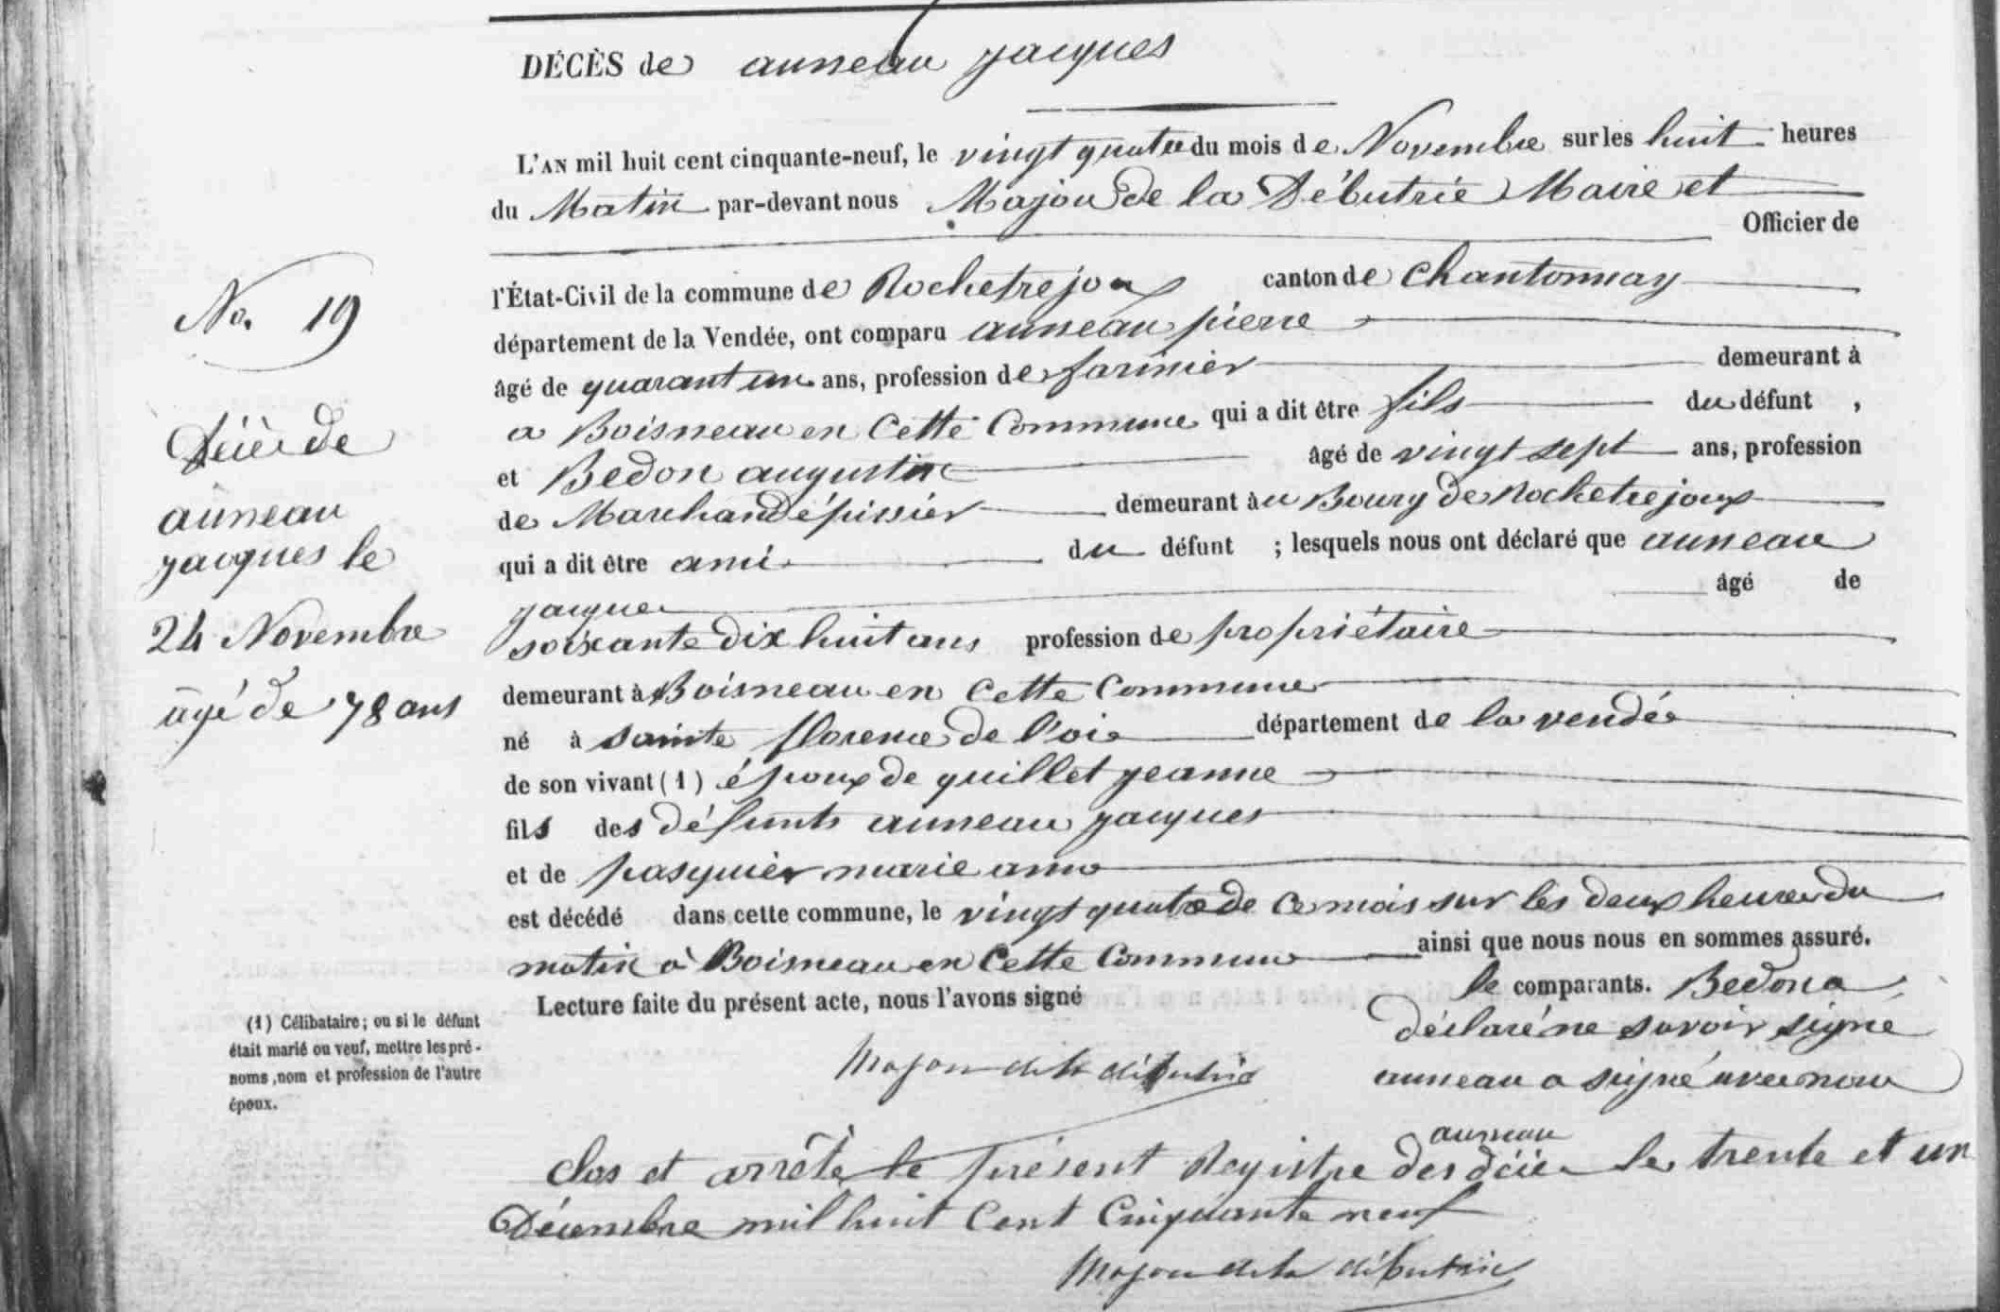 DÉCÈS de auneau jacques
L'AN mil huit cent cinquante-neuf, le vingt quatre du mois de Novembre sur les huit heures
du Matin par-devant nous Majou De la Débutrie Maire et
Officier de
l'État-Civil de la commune de Rochetrejoux canton de Chantonnay
département de la Vendée, ont comparu auneau pierre
âgé de quarant un ans, profession de farinier demeurant à
a Boisneau en Cette Commune qui a dit être fils du défunt ,
et Bedon augustin âgé de vingt sept ans, profession
de Marchand épissier demeurant àu Bourg De Rochetrejoux
qui a dit être ami du défunt ; lesquels nous ont déclaré que auneau
jacques âgé de
soixante Dix huit ans profession de propriétaire
demeurant à Boisneau en Cette Commune
né à sainte florence De l'oie département de la vendée
de son vivant (1) époux De quillet jeanne
fils des défunts auneau jacques
et de pasquier marie anne
est décédé dans cette commune, le vingt quatre de ce mois sur les deux heures du
matin à Boisneau en Cette Commune ainsi que nous nous en sommes assuré.
Lecture faite du présent acte, nous l'avons signé le comparants. Bedon a
Déclaré ne savoir signe
auneau a signé avec nous
Majou de la débutrie
auneau
Clos et arrêté le présent Registre des décès le trente et un
Décembre mil huit Cent Cinquante neuf
Majou de la débutrie
No. 19
Décès de
auneau
jacques le
24 Novembre
âgé de 78 ans
(1) Célibataire; ou si le défunt
était marié ou veuf, mettre les pré-
noms, nom et profession de l'autre
époux.